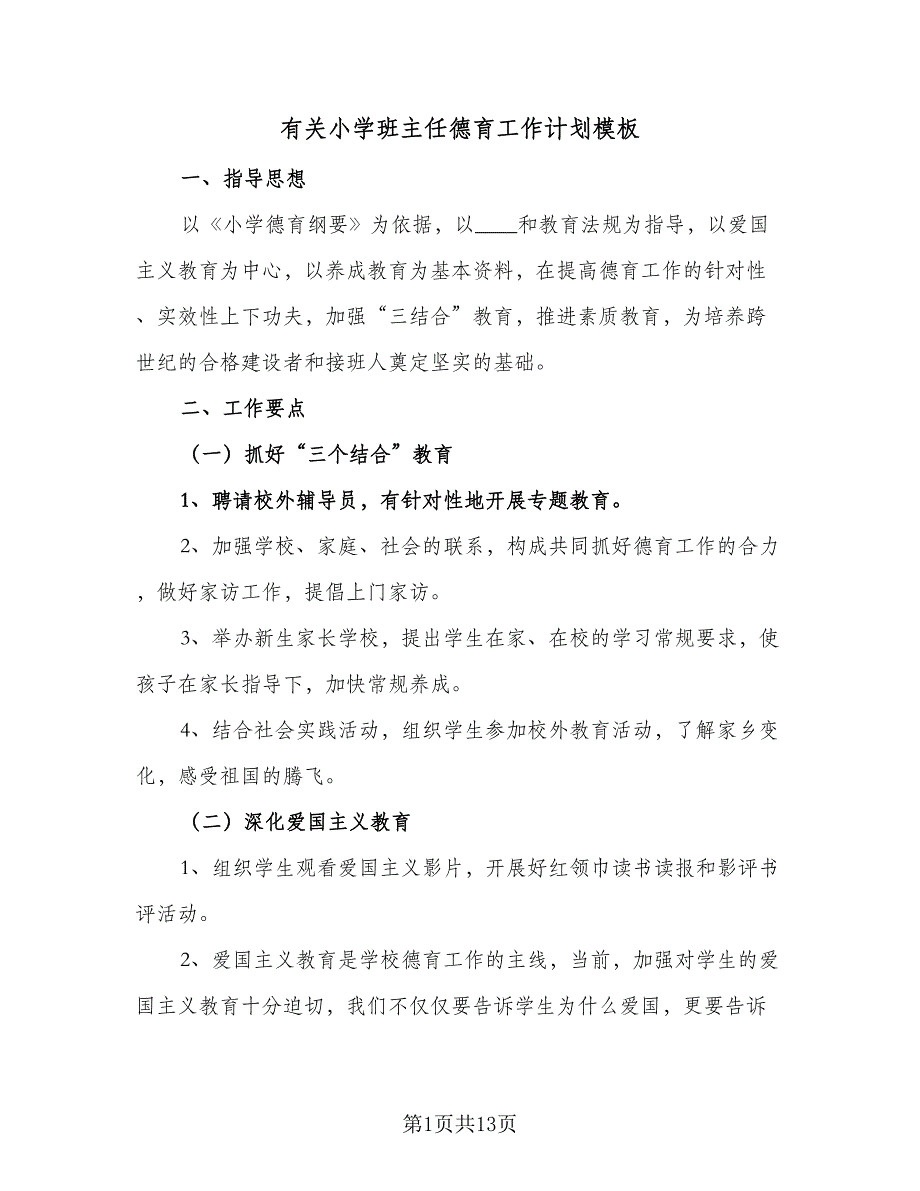 有关小学班主任德育工作计划模板
一、指导思想
以《小学德育纲要》为依据，以____和教育法规为指导，以爱国
主义教育为中心，以养成教育为基本资料，在提高德育工作的针对性
、实效性上下功夫，加强“三结合”教育，推进素质教育，为培养跨
世纪的合格建设者和接班人奠定坚实的基础。
二、工作要点
（一）抓好“三个结合”教育
1、聘请校外辅导员，有针对性地开展专题教育。
2、加强学校、家庭、社会的联系，构成共同抓好德育工作的合力
，做好家访工作，提倡上门家访。
3、举办新生家长学校，提出学生在家、在校的学习常规要求，使
孩子在家长指导下，加快常规养成。
4、结合社会实践活动，组织学生参加校外教育活动，了解家乡变
化，感受祖国的腾飞。
（二）深化爱国主义教育
1、组织学生观看爱国主义影片，开展好红领巾读书读报和影评书
评活动。
2、爱国主义教育是学校德育工作的主线，当前，加强对学生的爱
国主义教育十分迫切，我们不仅仅要告诉学生为什么爱国，更要告诉
第1页共13页